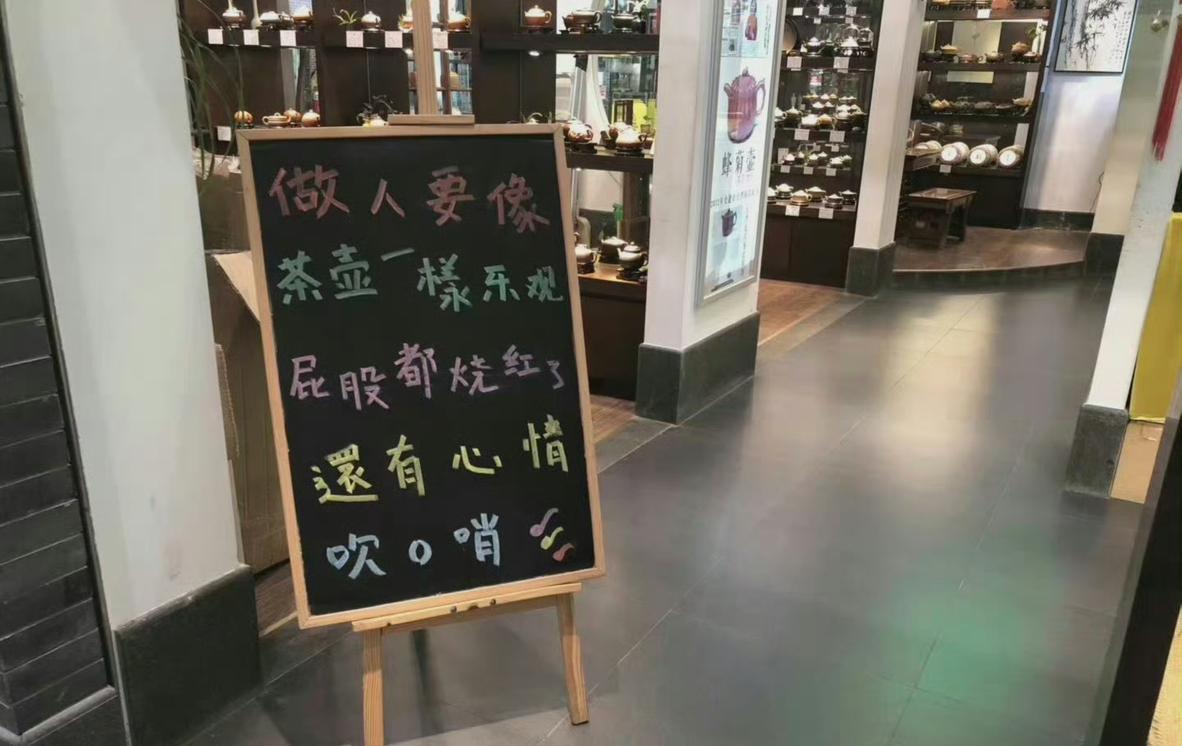 做人要像
茶壶一樣乐观
屁股都烧红了
還有心情
吹o哨
蜂菊壶